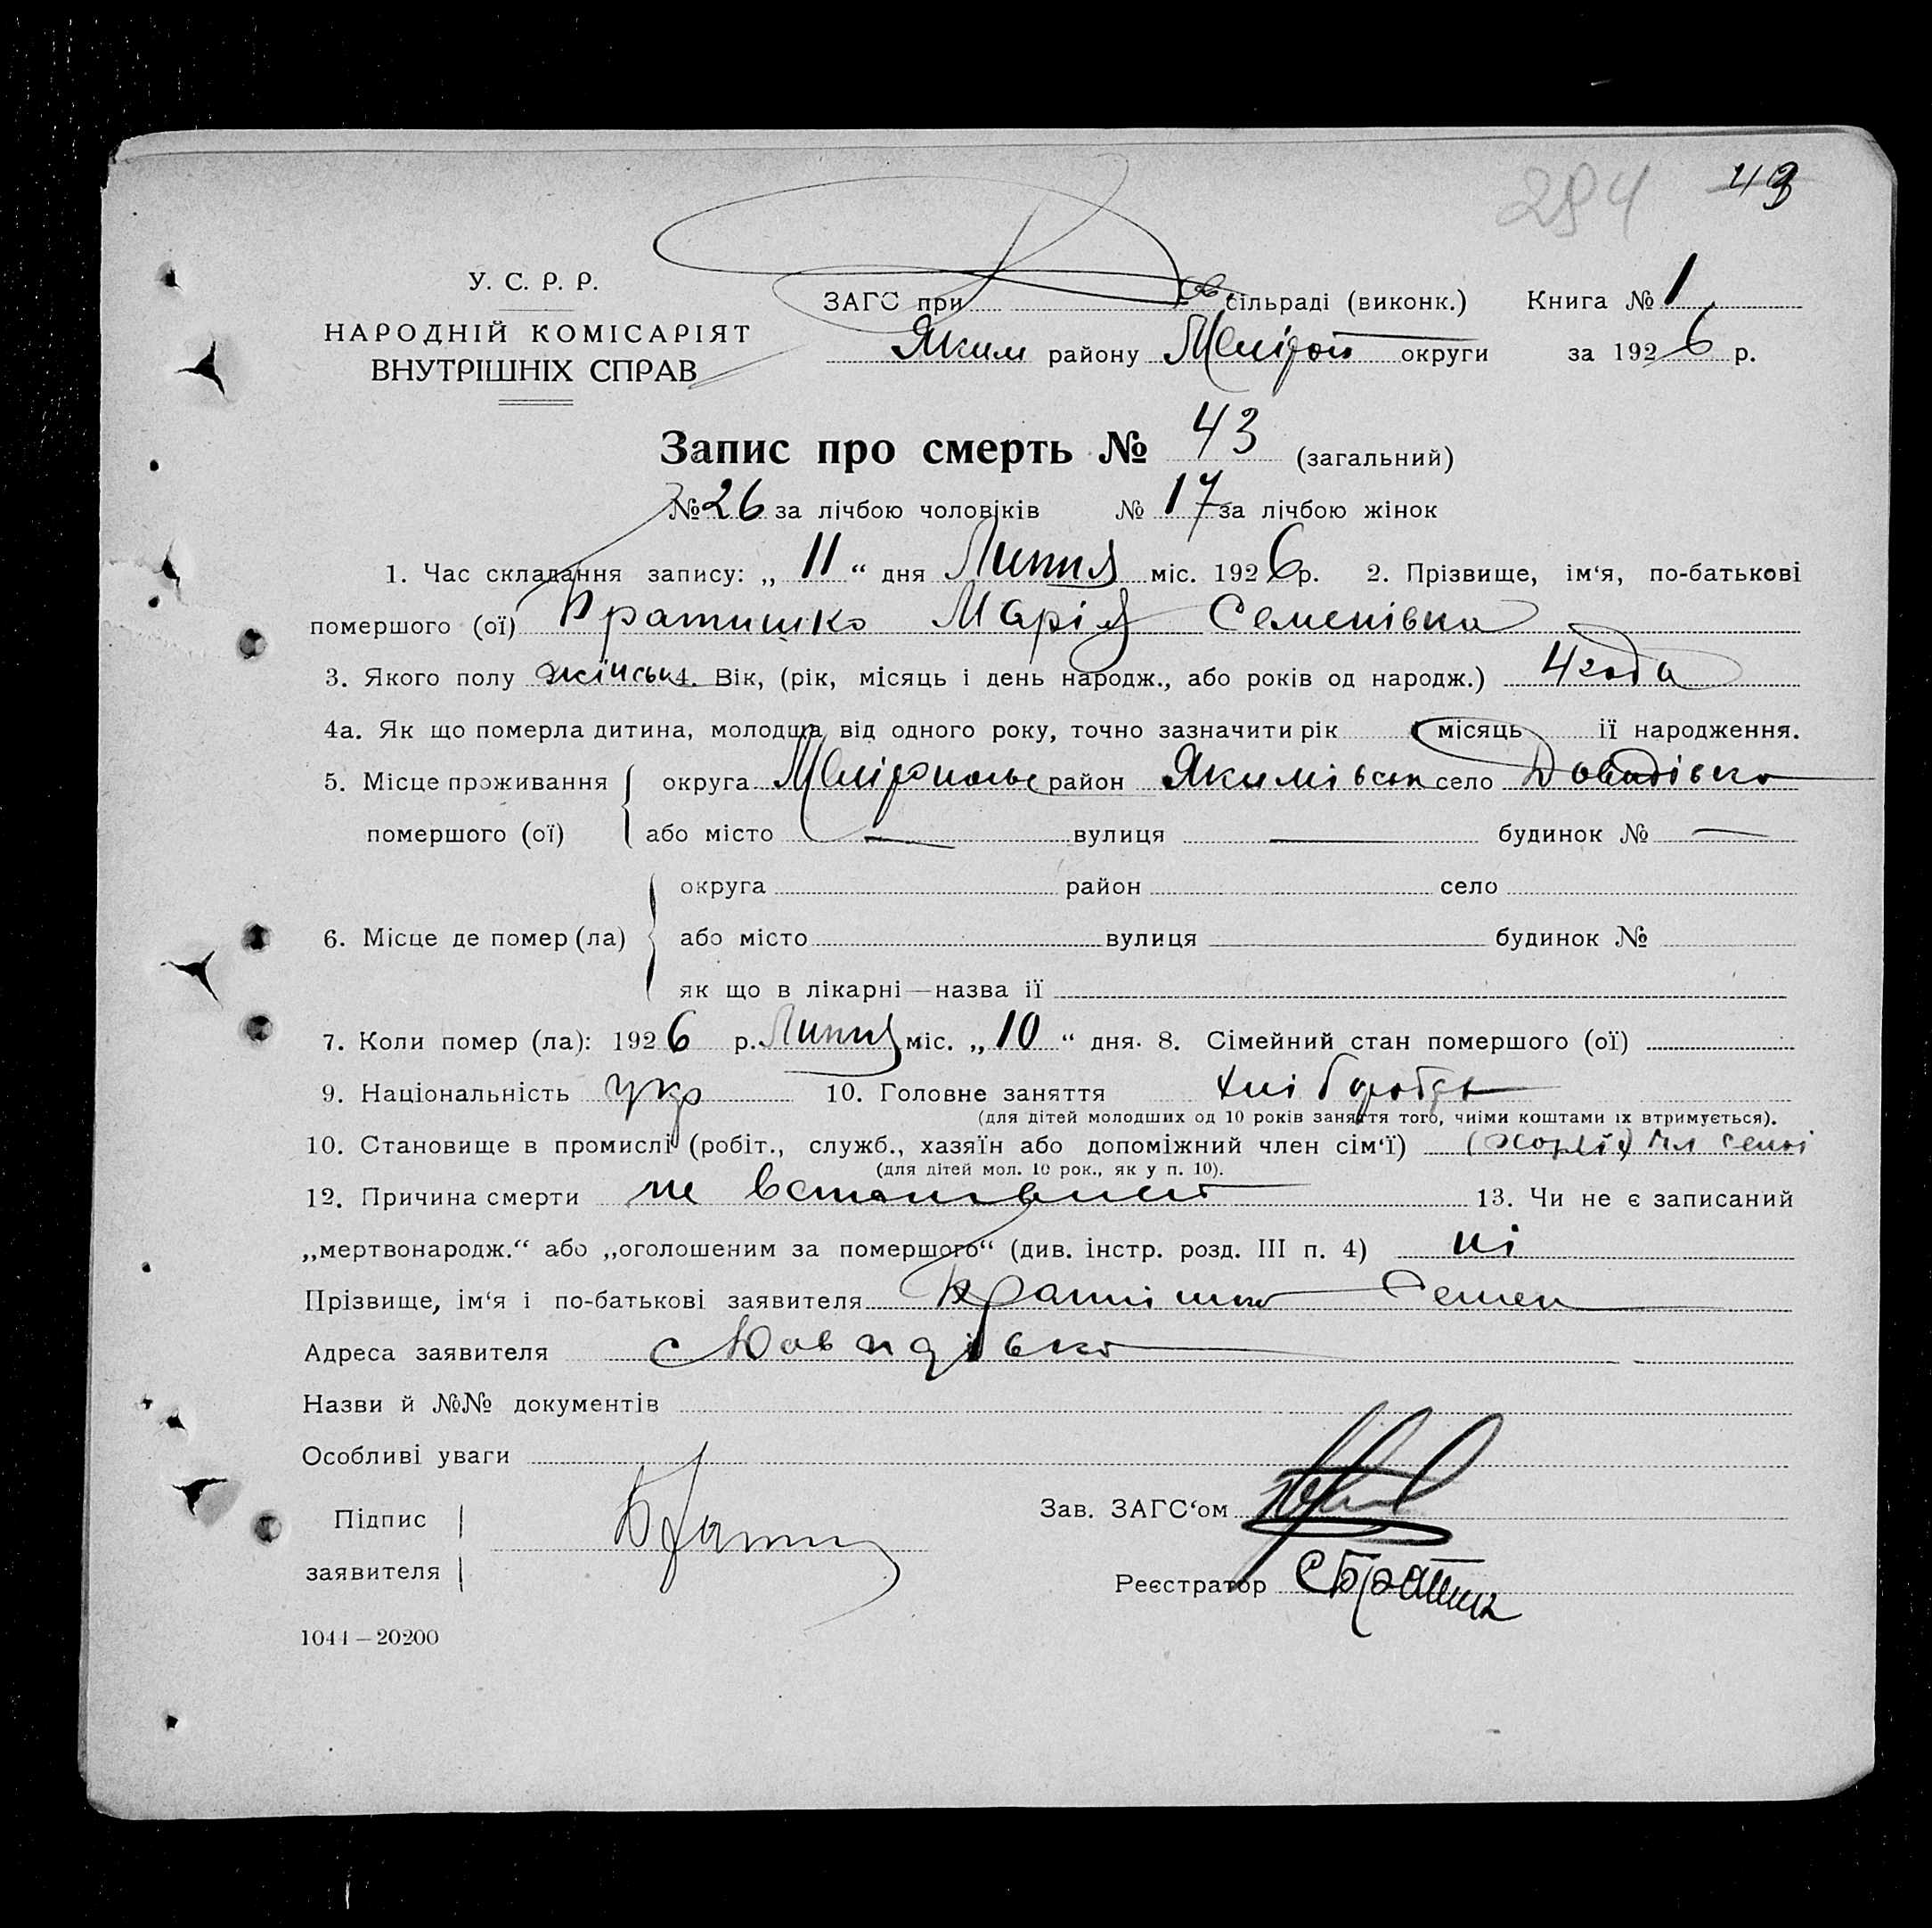 284 43
У. С. Р. Р.
НАРОДНІЙ КОМІСАРІЯТ
ВНУТРІШНІХ СПРАВ
ЗАГС при сільраді (виконк.) Книга № 1
Яким району Меліфоп округи за 1926 р.
Запис про смерть № 43 (загальний)
№ 26 за лічбою чоловіків № 17 за лічбою жінок
1. Час складання запису: „ 11 “ дня Липня міс. 1926 р. 2. Прізвище, ім‘я, по-батькові
помершого (ої) Братишко Марія Семенівна
3. Якого полу жіноськ 4. Вік, (рік, місяць і день народж., або років од народж.) 4 года
4а. Як що померла дитина, молодша від одного року, точно зазначити рік місяць її народження.
5. Місце проживання округа район Якимівськ село Давидівка
помершого (ої) або місто — вулиця — будинок № —
округа район село
6. Місце де помер (ла) або місто вулиця будинок №
як що в лікарні—назва її
7. Коли помер (ла): 1926 р. Липня міс. „ 10 “ дня. 8. Сімейний стан помершого (ої)
9. Національність укр 10. Головне заняття
(для дітей молодших од 10 років заняття того, чиїми коштами їх втримується).
10. Становище в промислі (робіт., служб., хазяїн або допоміжний член сім‘ї)
(для дітей мол. 10 рок., як у п. 10).
12. Причина смерти не 13. Чи не є записаний
„мертвонародж.“ або „оголошеним за помершого“ (див. інстр. розд. III п. 4) ні
Прізвище, ім‘я і по-батькові заявителя Семен
Адреса заявителя с Давидівка
Назви й №№ документів
Особливі уваги
Підпис
заявителя
Зав. ЗАГС‘ом
Реєстратор
1044 — 20200